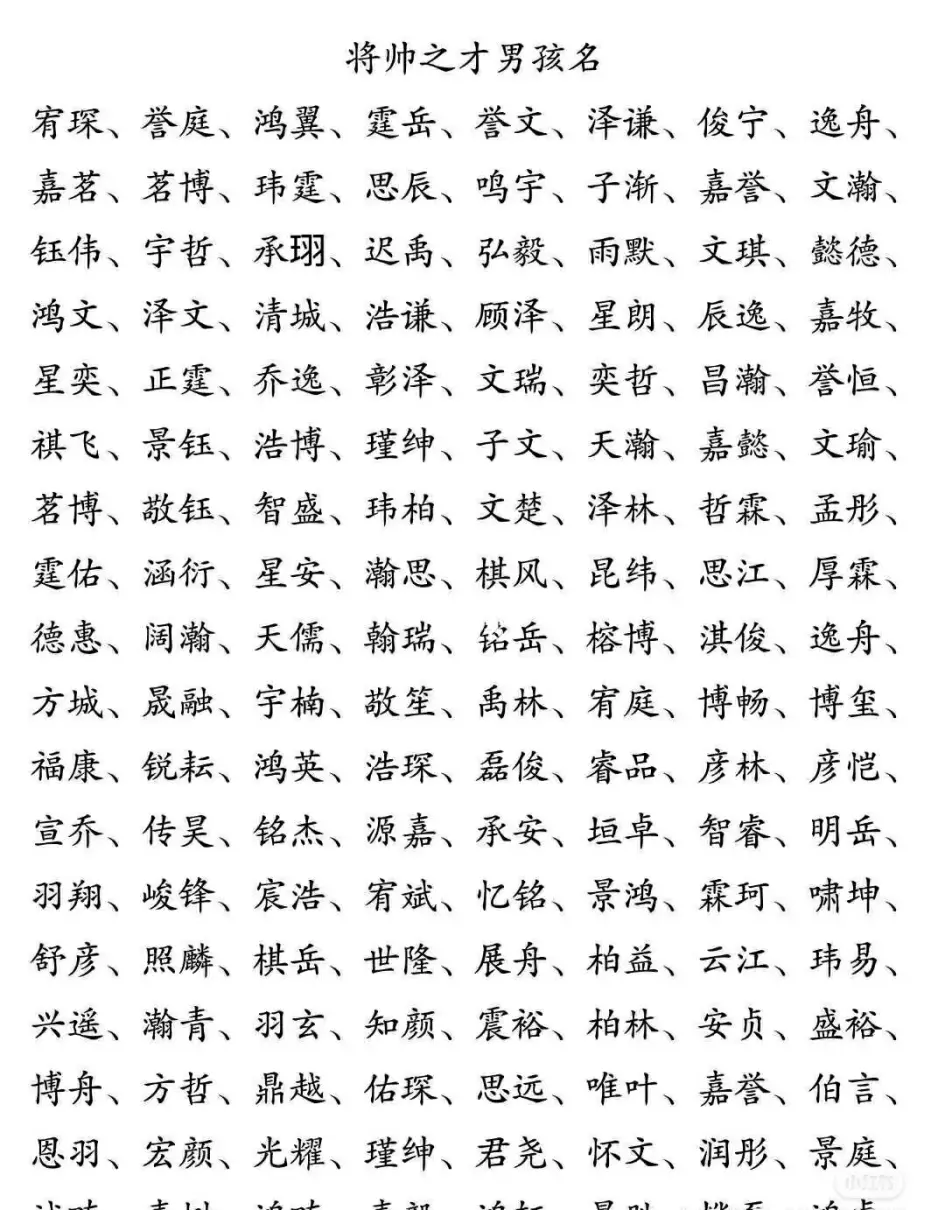 将帅之才男孩名
宥琛、誉庭、鸿翼、霆岳、誉文、泽谦、俊宁、逸舟、
嘉茗、茗博、玮霆、思辰、鸣宇、子渐、嘉誉、文瀚、
钰伟、宇哲、承珝、迟禹、弘毅、雨默、文琪、懿德、
鸿文、泽文、清城、浩谦、顾泽、星朗、辰逸、嘉牧、
星奕、正霆、乔逸、彰泽、文瑞、奕哲、昌瀚、誉恒、
祺飞、景钰、浩博、瑾绅、子文、天瀚、嘉懿、文瑜、
茗博、敬钰、智盛、玮柏、文楚、泽林、哲霖、孟彤、
霆佑、涵衍、星安、瀚思、棋风、昆纬、思江、厚霖、
德惠、阔瀚、天儒、翰瑞、铭岳、榕博、淇俊、逸舟、
方城、晟融、宇楠、敬笙、禹林、宥庭、博畅、博玺、
福康、锐耘、鸿英、浩琛、磊俊、睿品、彦林、彦恺、
宣乔、传昊、铭杰、源嘉、承安、垣卓、智睿、明岳、
羽翔、峻锋、宸浩、宥斌、忆铭、景鸿、霖珂、啸坤、
舒彦、照麟、棋岳、世隆、展舟、柏益、云江、玮易、
兴遥、瀚青、羽玄、知颜、震裕、柏林、安贞、盛裕、
博舟、方哲、鼎越、佑琛、思远、唯叶、嘉誉、伯言、
恩羽、宏颜、光耀、瑾绅、君尧、怀文、润彤、景庭、
小红书